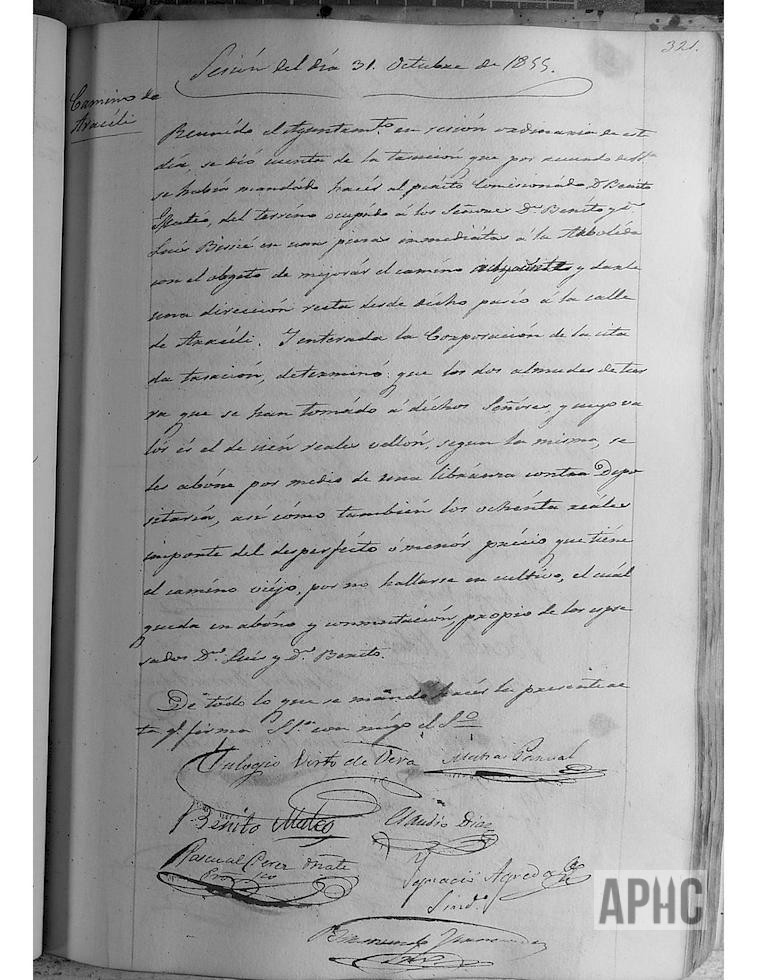 321.
Sesión del día 31. Octubre de 1855.
Camino de
Aracéli
Reunído el Ayuntamto en sesión ordinaria de este
día, se dió cuenta de la tasación que por acuerdo del
se había mandádo hacér al períto Comisionádo D. Benito
Matéo, del terréno ocupádo á los Señores Dn. Benito y Dn.
Luís en una pieza inmediáta á la Arboléda
con el objeto de mejorár el camíno y darle
una dirección recta desde dícho paséo á la calle
de Aracéli. Y enterada la Corporación de la cita
da tasación, determinó: que los dos almudes de tier
ra que se han tomádo á díchos Señóres, y cuyo va
lór és el de cién reales vellón, segun la misma, se
les abóne por medio de una libránza contra Depo
sitaría, así cómo también los ochénta reáles
importe del desperfécto ó menór précio que tiéne
el camíno viéjo, por no hallarse en cultívo, el cuál
queda en abóno y conmutación, propio de los espre
sados Dn. Luís y Dn. Benito.
De tódo lo que se mandó hacér la presente ac
ta qe. firma SSa. con mígo el Srio
Eulogio Virto de Vera Matias Pascual
Benito Mateo Claudio Diaz
Pascual Perez Oñate
Ignacio Agreda
Sindo.
Srio
APHC